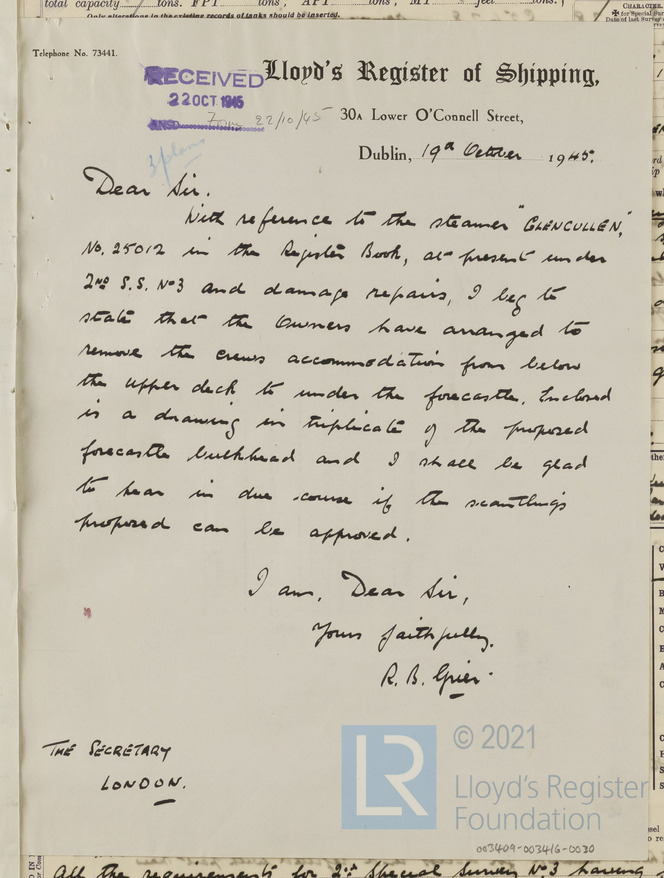 total capacity tons. FPT tons, APT tons, MT feet tons.
Only alterations in the existing records of tanks should be inserted.
CHARACTER.
for Special Sur
Date of last Survey
Telephone No. 73441.
RECEIVED
22 OCT 1945
22/10/45
3 plans
Lloyd's Register of Shipping,
30A Lower O'Connell Street,
Dublin, 19th October 1945.
Dear Sir.
With reference to the steamer "GLENCULLEN,"
No. 25012 in the Register Book, at present under
2ND S.S. No 3 and damage repairs, I beg to
state that the Owners have arranged to
remove the crews accommodation from below
the upper deck to under the forecastle. Enclosed
is a drawing in triplicate of the proposed
forecastle bulkhead and I shall be glad
to hear in due course if the scantlings
proposed can be approved.
I am, Dear Sir,
Yours faithfully.
R. B. Grier.
THE SECRETARY
LONDON.
LR
© 2021
Lloyd's Register
Foundation
003409-003416-0030
All the requirements for 2nd Special Survey No 3 having